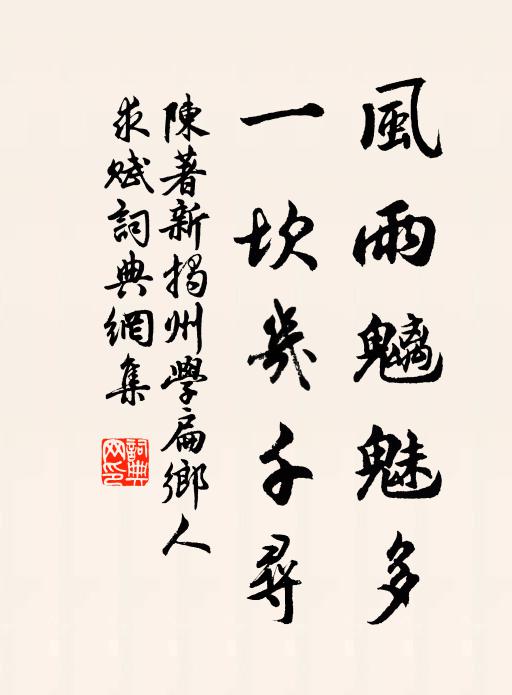 風雨魑魅多
一坎幾千尋
陳著新揭州學扁鄉人
求賦詞典網集
詞典
网印